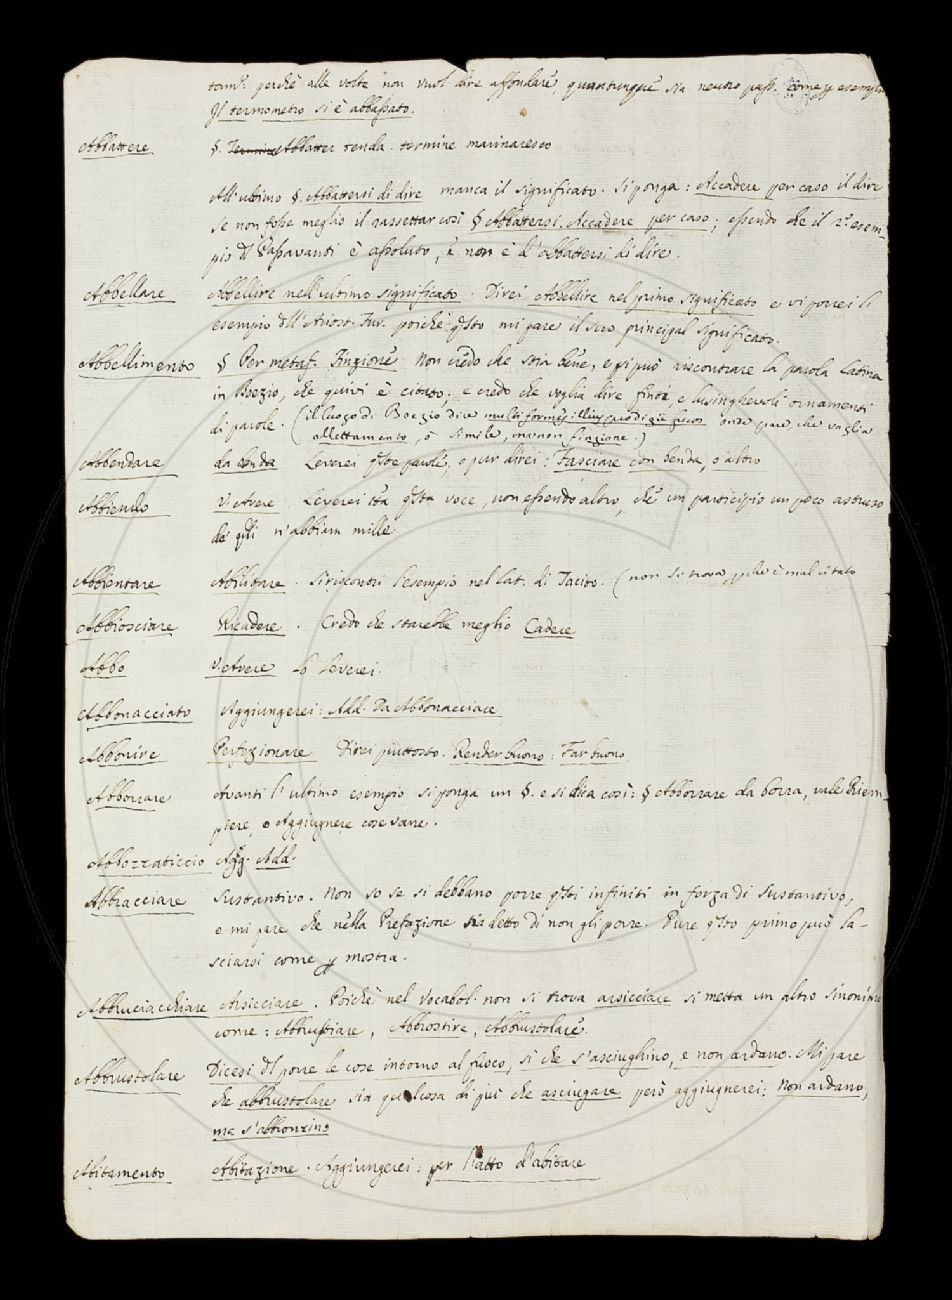 perchè alle volte non vuol dire affondare, quantunque sia neutro pass. come p esempio
Il termometro si è abbassato.
Abbattere §. Abbatter tenda. termine marinaresco
All'ultimo §. Abbattersi di dire manca il significato. Si ponga: Accadere per caso il dire
se non fosse meglio il rassettar così § Abbattersi. Accadere per caso; essendo che il 2º esem-
pio Passavanti è assoluto, e non è l'abbattersi di dire.
Abbellare Abbellire nell'ultimo significato. Direi Abbellire nel primo significato e vi porrei l
esempio dll'Ariost. Fur. poichè qsto mi pare il suo principal significato.
Abbellimento § Per metaf. Finzione Non credo che stia bene, e si può riscontrare la parola latina
in Boezio, che quivi è citato; e credo che voglia dire finti, e lusinghevoli ornamenti
di parole. (il luogo di Boezio dice multiformes illius prodigii fucos onde pare che vaglia
allettamento, o simile, ma non finzione.)
Abbendare da benda Leverei qste parole, o pur direi: Fasciare con benda, o altro
Abbiendo V. Avere Leverei qsta voce, non essendo altro, che un participio un poco astruso
de qli n'abbiam mille
Abbientare Abilitare. Si riscontri l'esempio nel Lat. di Tacito. (non si trova pchè è mal citato
Abbiosciare Ricadere. Credo che starebbe meglio Cadere
Abbo V. Avere Lo leverei.
Abbonacciato Aggiungerei: Add. Da Abbonacciare
Abbonire Perfezionare Direi piuttosto. Render buono: Far buono
Abborrare Avanti l'ultimo esempio si ponga un §. e si dica così: § Abborrare da borra, vale Riem-
piere, o Aggiugnere cose vane.
Abbozzaticcio Agg. Add.
Abbracciare Sustantivo. Non so se si debbano porre qsti infiniti in forza di Sustantivo,
e mi pare che nella Prefazione sia detto di non gli porre. Pure qsto primo può la-
sciarsi come p mostra.
Abbruciacchiare Arsicciare. Poichè nel Vocabol. non si trova arsicciare si metta un altro sinonimo
come: Abbrustiare, Abbrostire, Abbrustolare.
Abbrustolare Dicesi dl porre le cose intorno al fuoco, sì che s'asciughino, e non ardano. Mi pare
che abbrustolare sia qualcosa di più che asciugare però aggiugnerei: Non ardano,
ma s'abbronzino
Abitamento Abitazione. Aggiungerei: per l'atto d'abitare